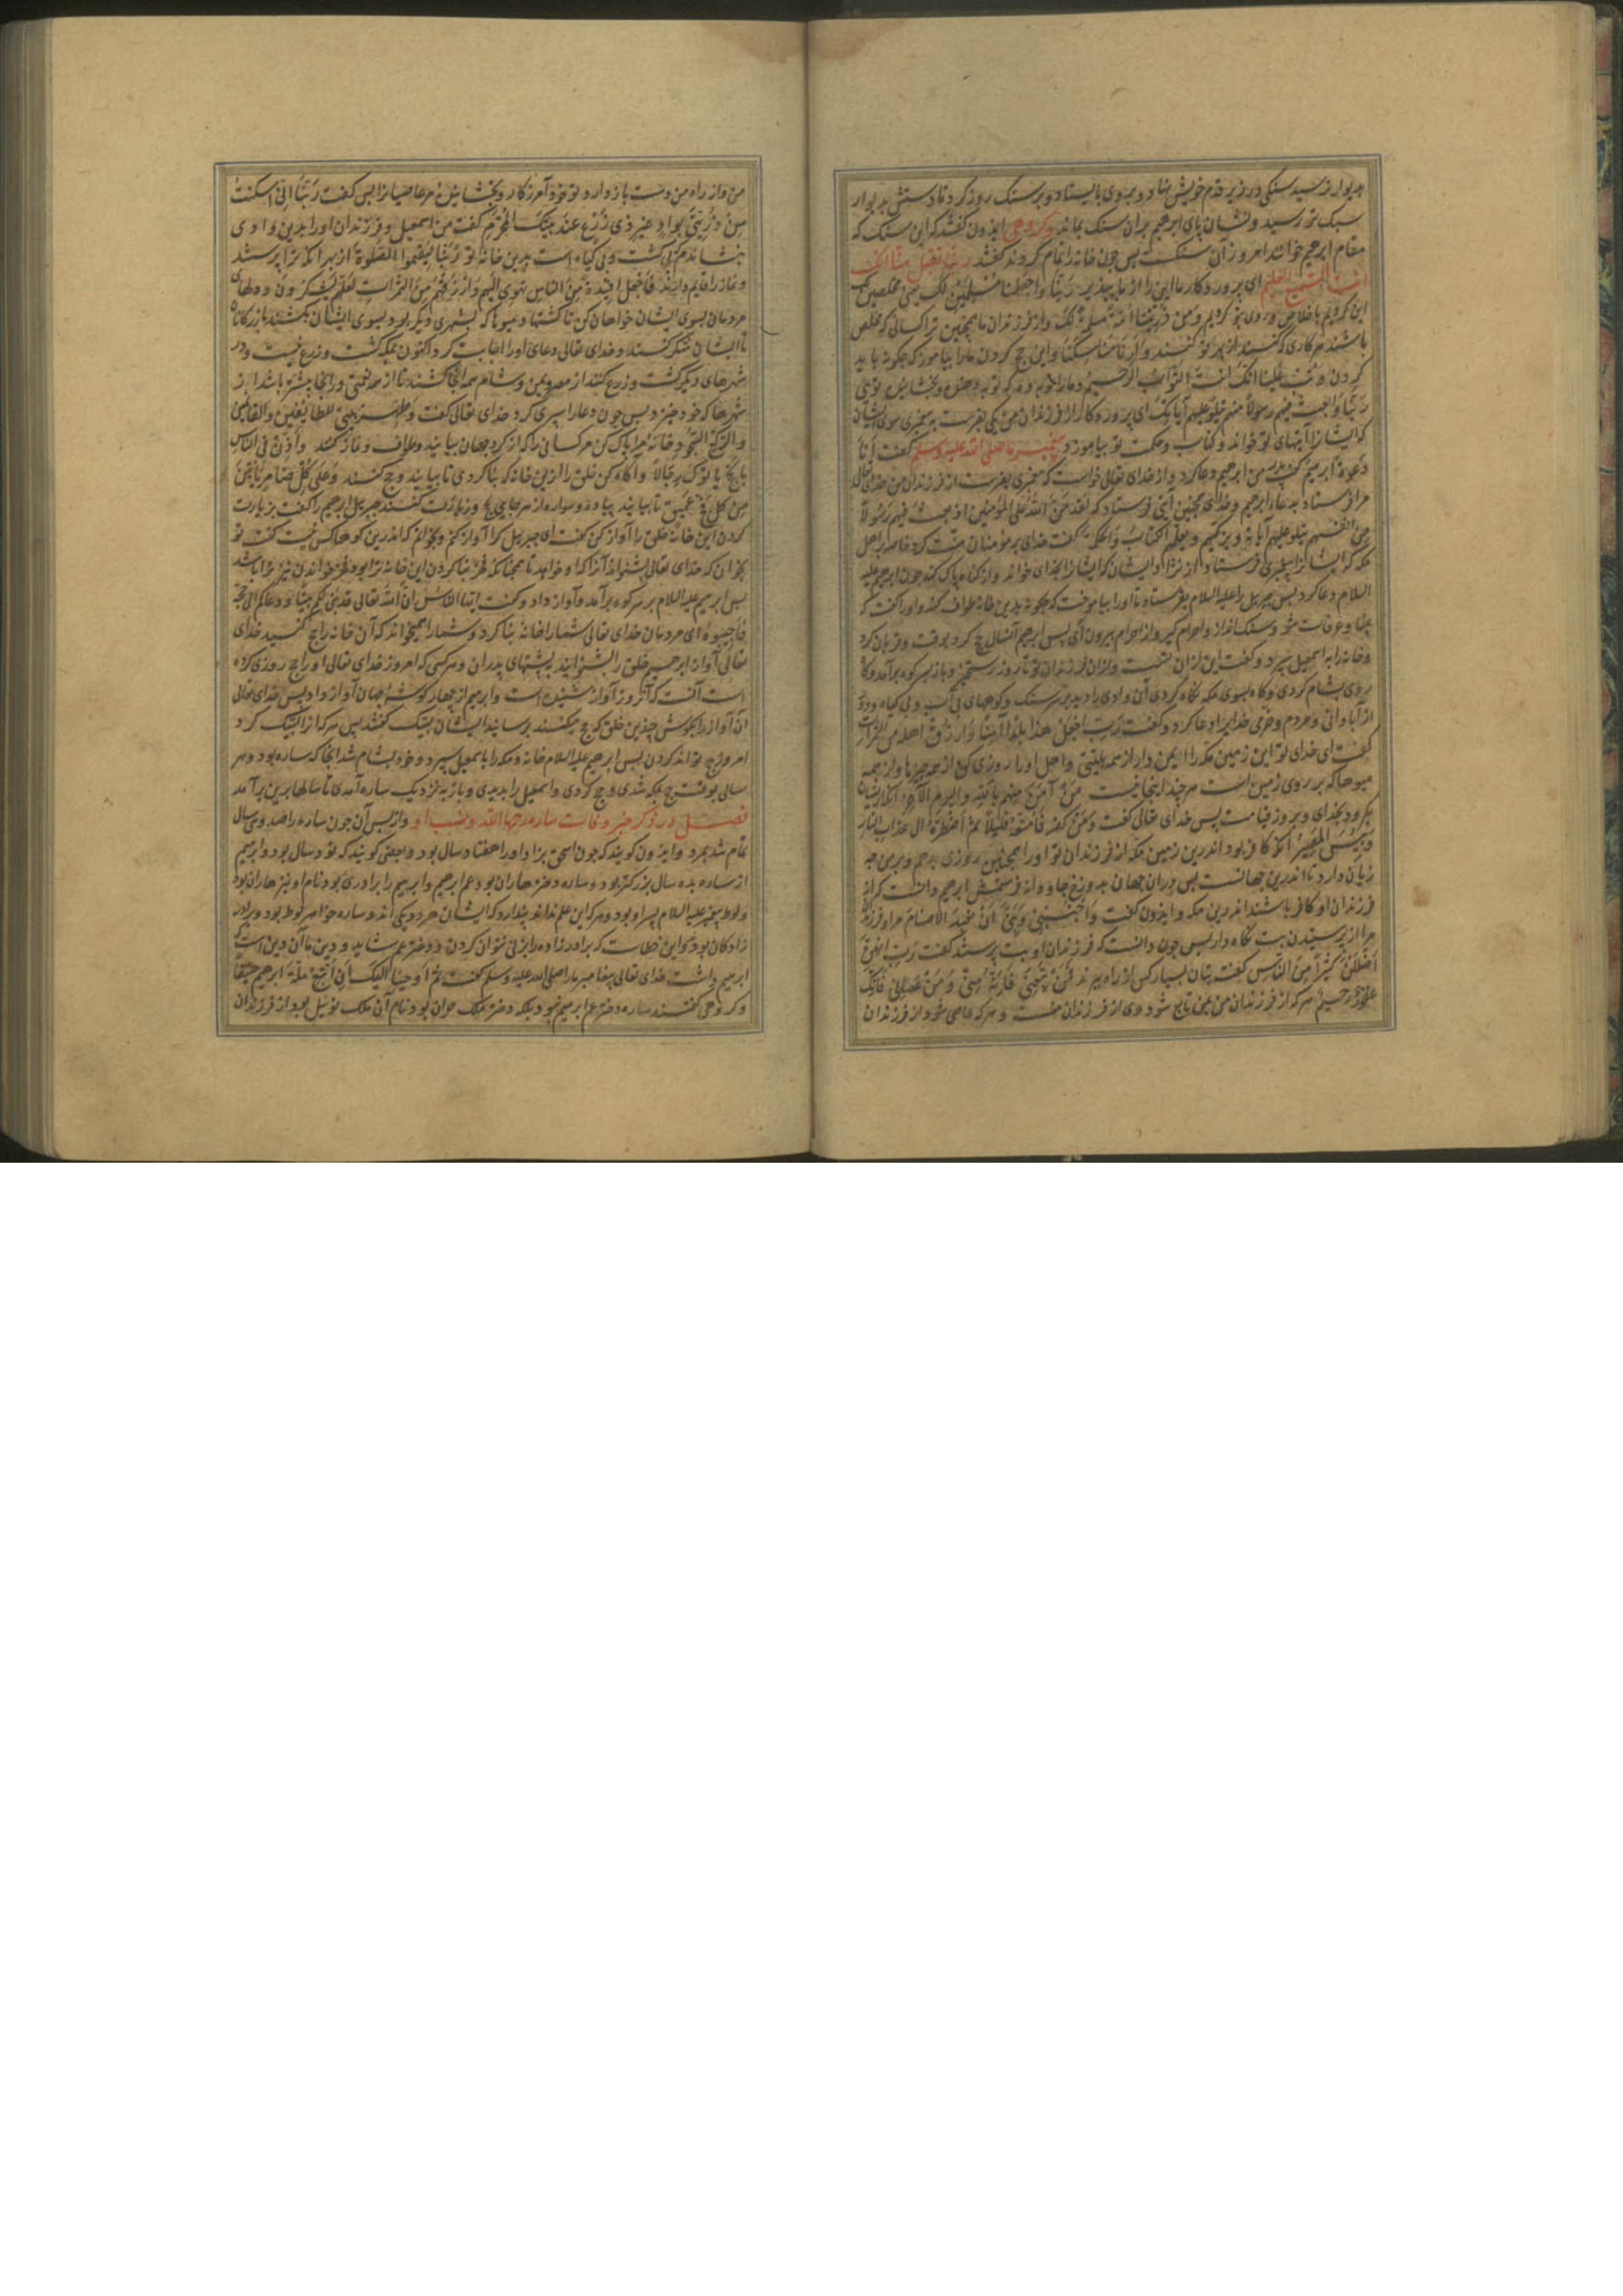 بدیوار نرسید سنکی در زیر قدم خویش نهاد و بروی بایستاد و بر سنک روز کرد تا دستش بدیوار
سبک تر رسید و نشان پای ابرهیم بران سنک بماند و کروهی ایذون کفتند که این سنک که
مقام ابرهیم خوانند امروز آن سنکست پس چون خانه را تمام کردند کفتند ربنا تقبل منا انک
انت السمیع العلیم ای پروردکار ما این را از ما بپذیر ربنا واجعلنا مسلمین لک یعنی مخلصین
این کردیم باخلاص و روی بتو کردیم ومن ذریتنا امة مسلمة لک و از فرزندان ما همچنین تراکسانی که مخلص
باشند هر کاری که کنند از بهر تو کنند وارنا مناسکنا و این حج کردن مارا بیاموز که چکونه باید
کردن وتب علینا انک انت التواب الرحیم و مارا توبه ده که توبه دهنده و بخشاینده تویی
ربنا وابعث فیهم رسولا منهم یتلو علیهم آیاتک ای پروردکار از فرزندان من یکی بفرست به پیغمبری سوی ایشان
که ایشانرا آیتهای تو خواند و کتاب و حکمت تو بیاموزد پیغمبر ما صلی الله علیه وسلم کفت انا
دعوة ابرهیم کفت پدر من ابرهیم دعا کرد و از خدای تعالی خواست که پیغمبری بفرست از فرزندان من خدای تعالی
مرا فرستاد بدعاء ابرهیم و خدای همچنین آیتی فرستاد که لقد من الله علی المؤمنین اذ بعث فیهم رسولا
من انفسهم یتلو علیهم آیاته ویزکیهم ویعلمهم الکتاب والحکمة کفت خدای بر مؤمنان منت کرد خاصه بر اهل
مکه که ایشانرا پیغمبری فرستاد از نژاد ایشان که ایشانرا بخدای خواند و از کناه پاک کند چون ابرهیم علیه
السلام دعا کرد پس جبریل را علیه السلام بفرستاد تا او را بیاموخت که چکونه بدین خانه طواف کند و او را کفت که
بمنا و عرفات شو و سنک انداز و احرام کیر و از احرام بیرون آی پس ابرهیم آنسال حج کرد بوقت و قربان کرد
و خانه را به اسمعیل سپرد و کفت این از ان تست و از ان فرزندان تو تا روز رستخیز و باز بسر کوه برآمد و کاه
روی بشام کردی و کاه بسوی مکه نکاه کردی آن وادی را دید پر سنک و کوههای بی آب و بی کیاه و دور
از آبادانی و مردم و خرمی خدایرا دعا کرد و کفت رب اجعل هذا بلدا آمنا وارزق اهله من الثمرات
کفت ای خدای تو این زمین مکه را ایمن دار از همه بلیتی و اهل او را روزی کن از همه چیزها و از همه
میوها که بر روی زمین است هر چند اینجا نیست من آمن منهم بالله والیوم الآخر آنکه از ایشان
بکرود بخدای و بروز قیامت پس خدای تعالی کفت ومن کفر فامتعه قلیلا ثم اضطره الی عذاب النار
وبئس المصیر آنکه کافر بود اندرین زمین مکه از فرزندان تو او را همچنین روزی بدهم و برین چه
زیان دارد تا اندرین جهانست پس دران جهان بدوزخ جاودانه فرستمش ابرهیم دانست که از
فرزندان او کافر باشند اندرین مکه و ایذون کفت واجنبنی وبنی ان نعبد الاصنام مرا و فرزندان
مرا از پرستیدن بت نکاه دار پس چون دانست که فرزندان او بت پرستند کفت رب انهن
اضللن کثیرا من الناس کفت بتان بسیار کس از راه ببرند فمن تبعنی فانه منی ومن عصانی فانک
غفور رحیم هر که از فرزندان من بمن تابع شود وی از فرزندان منست و هر که عاصی شود از فرزندان
من و از راه من دست بازدارد تو خود آمرزکار و بخشاینده مر عاصیانرا پس کفت ربنا انی اسکنت
من ذریتی بواد غیر ذی زرع عند بیتک المحرم کفت من اسمعیل و فرزندان او را بدین وادی
بنشاندم که بی کشت و بی کیاه است بدین خانه تو ربنا لیقیموا الصلوة از بهر آنکه ترا پرستند
و نماز را قایم دارند فاجعل افئدة من الناس تهوی الیهم وارزقهم من الثمرات لعلهم یشکرون و دلهای
مردمان بسوی ایشان خواهان کن تا کشتها و میوها که بشهری دیکر بود بسوی ایشان بکشند بازرکانان
تا ایشان شکر کنند و خدای تعالی دعای او را اجابت کرد اکنون بمکه کشت و زرع نیست و در
شهرهای دیکر کشت و زرع کنند از مصر و یمن و شام همه آنجا کشند تا از هر نعمتی در آنجا بیشتر باشد از
شهرها که خود خیزد پس چون دعا را سپری کرد خدای تعالی کفت وطهر بیتی للطائفین والقائمین
والرکع السجود خانه مرا پاک کن مر کسانی را که از کرد جهان بیایند و طواف و نماز کنند واذن فی الناس
بالحج یاتوک رجالا و آکاه کن خلق را ازین خانه که بنا کردی تا بیایند و حج کنند وعلی کل ضامر یاتین
من کل فج عمیق تا بیایند پیاده و سواره از هر جایی و زیارت کنند جبریل ابرهیم را کفت بزیارت
کردن این خانه خلق را آواز کن کفت ای جبریل کرا آواز کنم و بخوانم که اندرین کوهها کس نیست کفت تو
بخوان که خدای تعالی بشنواند آنرا که او خواهد تا همچنانکه مزد بنا کردن این خانه ترا بود مزد خواندن نیز ترا باشد
پس ابرهیم علیه السلام بر سر کوه برآمد و آواز داد و کفت ایها الناس ان الله تعالی قد بنی لکم بیتا ودعاکم الی حجه
فاجیبوه ای مردمان خدای تعالی شما را خانه بنا کرد و شما را همیخواند که آن خانه را حج کنید خدای
تعالی آواز ابرهیم خلق را بشنوانید به پشتهای پدران و هر کسی که امروز خدای تعالی او را حج روزی کرده
است آنست که آنروز آواز شنیده است و ابرهیم از چهار کوشه جهان آواز داد پس خدای تعالی
آن آواز را بکوش چندین خلق که حج میکنند برسانید ایشان لبیک کفتند پس هر که آنرا لبیک کرد
امروز حج تواند کردن پس ابرهیم علیه السلام خانه و مکه را باسمعیل سپرد و خود بشام شد آنجا که ساره بود و هر
سالی بوقت حج بمکه شدی و حج کردی و اسمعیل را بدیدی و باز به نزدیک ساره آمدی تا سالها برین برآمد
فصل در ذکر خبر وفات ساره رحمها الله ونسب او و از پس آن چون ساره را صد و سی سال
تمام شد بمرد و ایذون کویند که چون اسحق بزاد او را هفتاد سال بود و بعضی کویند که نود سال بود و ابرهیم
از ساره بده سال بزرکتر بود و ساره دختر هاران بود عم ابرهیم و ابرهیم را برادری بود نام او نیز هاران بود
و لوط پیغمبر علیه السلام پسر او بود و هر که این علم نداند پندارد که ایشان هر دو یکی اند و ساره خواهر لوط بود و برادر
زادکان بود و این خطاست که برادرزاده را بزنی نتوان کردن و دختر عم شاید و دین ما آن دین است که
ابرهیم داشت خدای تعالی پیغامبر ما را صلی الله علیه وسلم کفت ثم اوحینا الیک ان اتبع ملة ابرهیم حنیفا
و کروهی کفتند ساره دختر عم ابرهیم نبود بلکه دختر ملک حران بود نام آن ملک توبیل بود از فرزندان